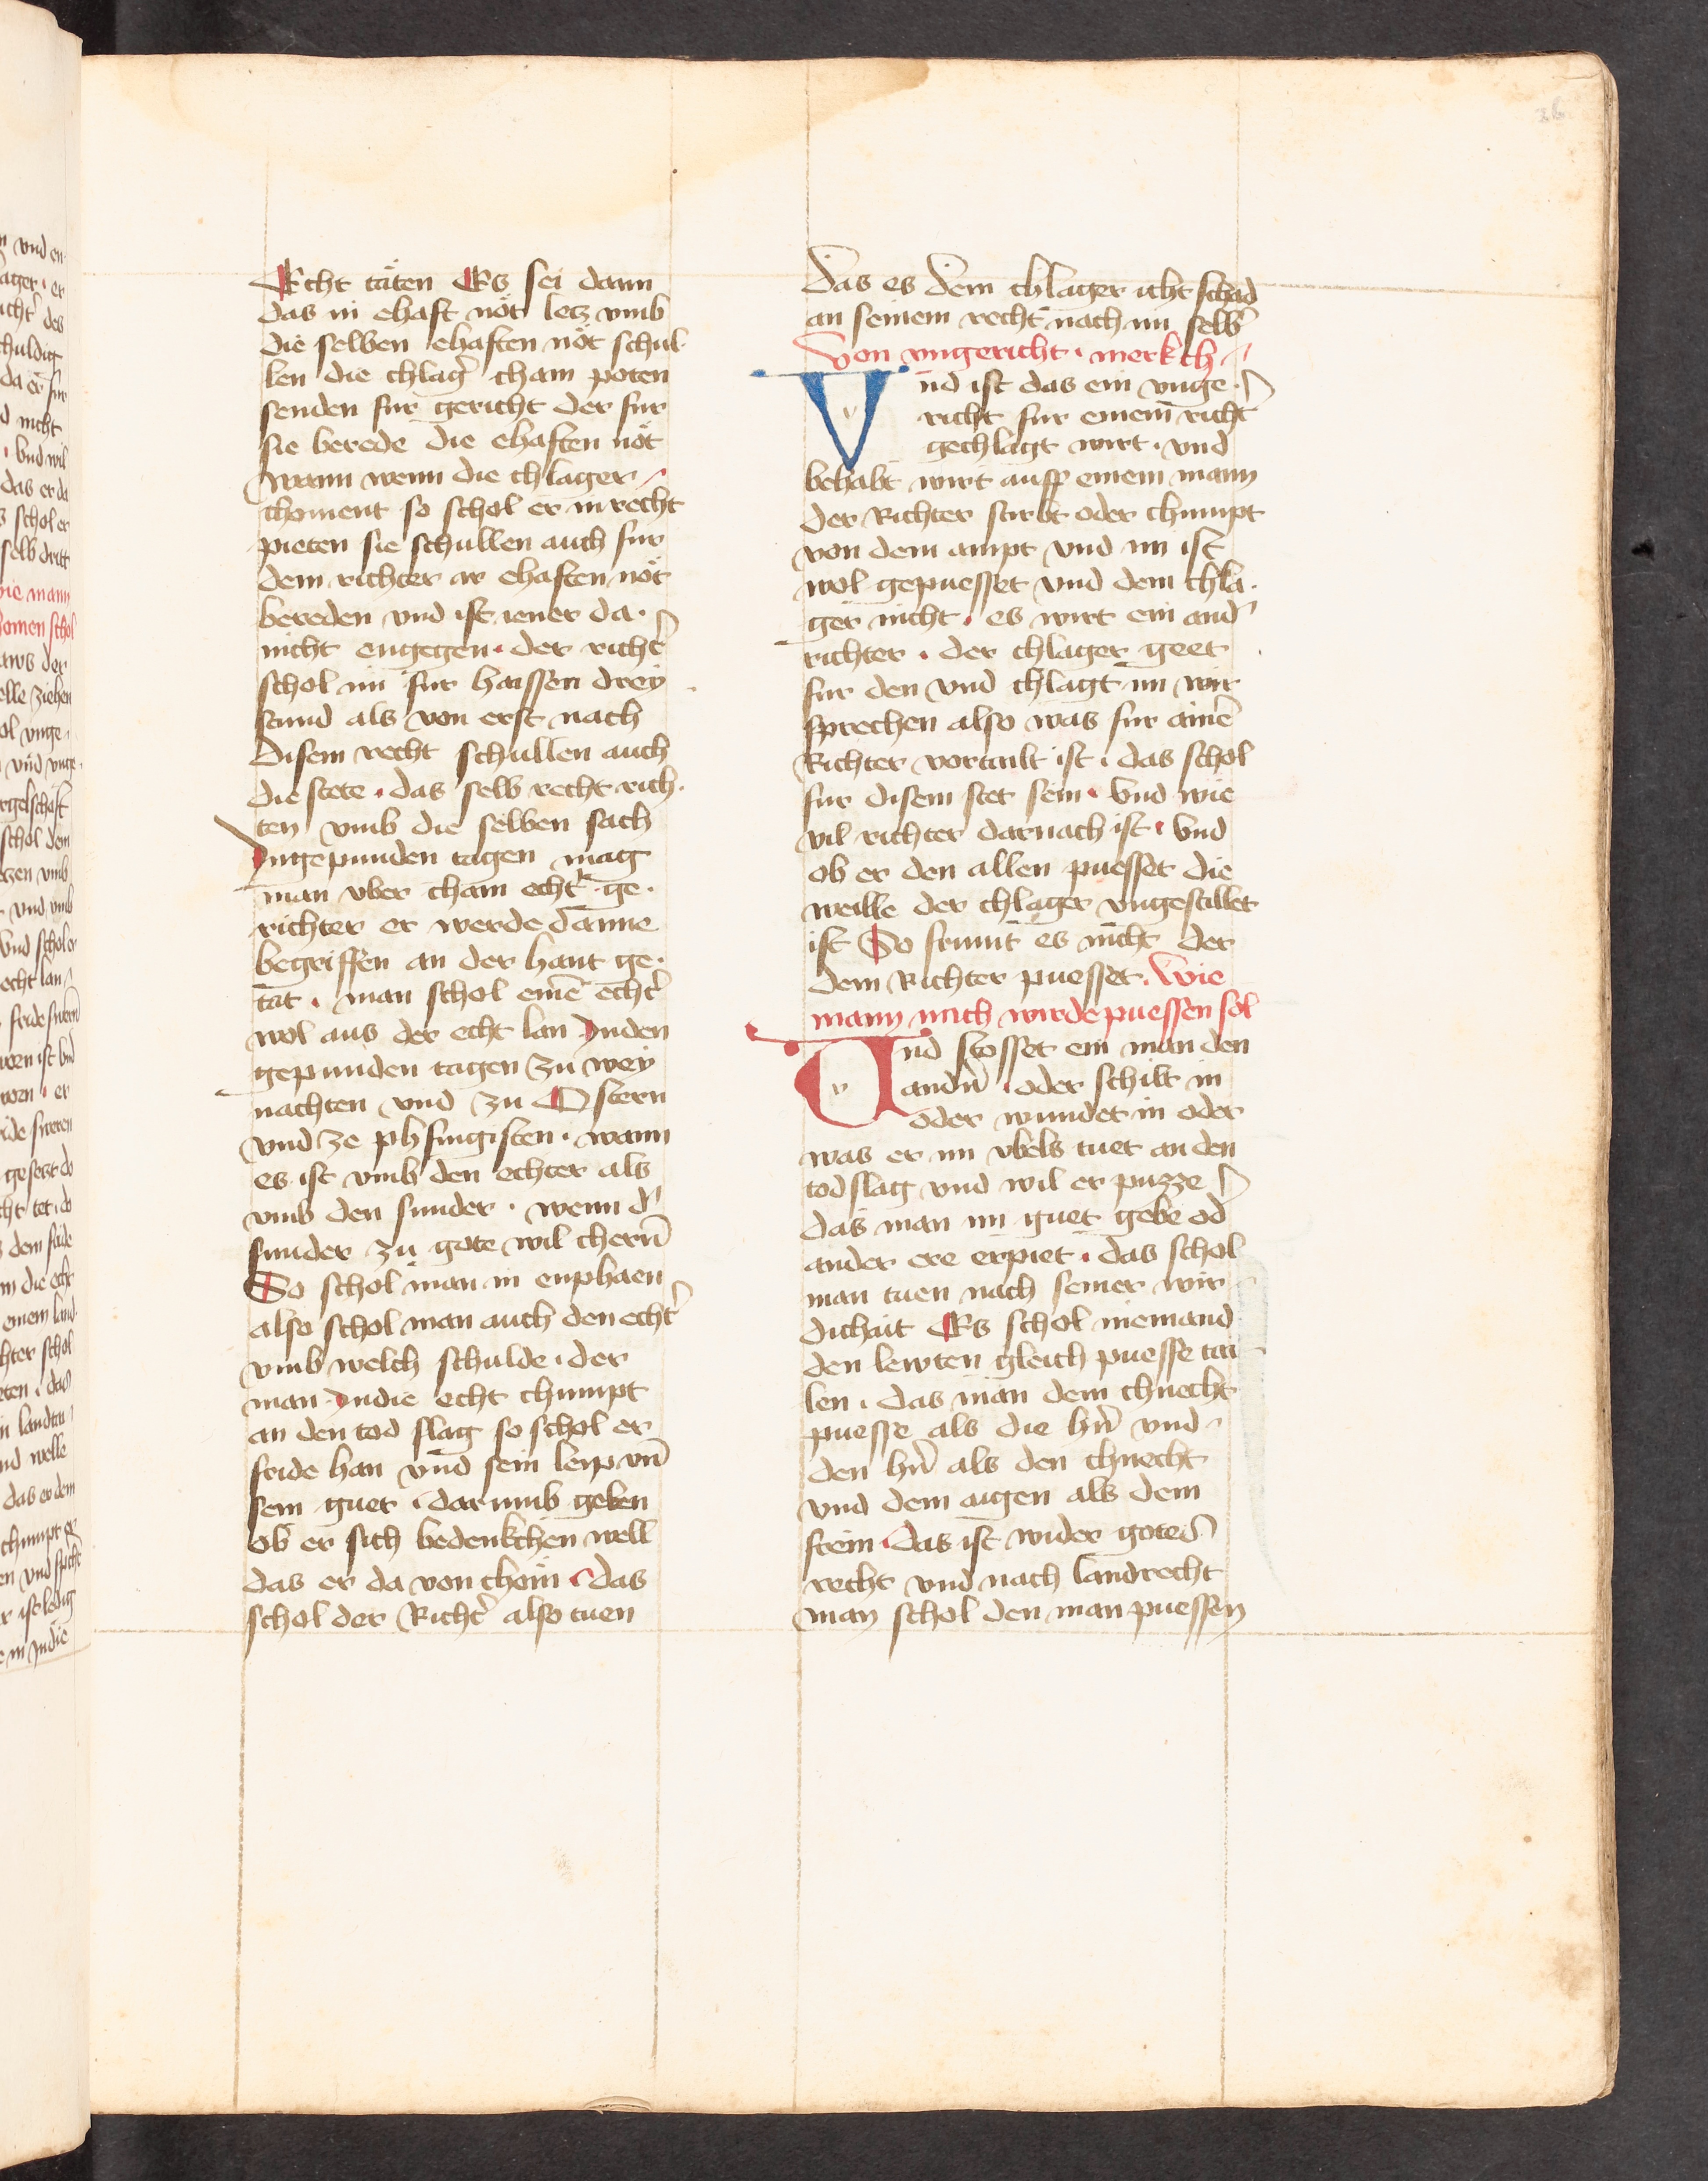 Echt täten Es sei dann
das in ehaft nöt letz vmb
die selben ehaften nöt schul
len die chlagˀ cham poten
senden fur gericht der fur
sie berede die ehaften nöt
wann wenn die chlager
choment so schol er in recht
pieten sie schullen auch fur
dem richter ir ehaften nöt
bereden vnd ist iener da
nicht engegen · der richtˀ
schol im fur haissen drey
stund als von erst nach
disem recht schullen auch
die stete · das selb recht rich·
ten vmb die selben sach
Jngepunden tagen mag
man vber cham echtˀ ge·
richten er werde danne
begriffen an der hant ge·
tat · man schol einē echtˀ
wol aus der echt lan Jnden
gepunden tagen zu wey
nachten vnd zu Ostern
vnd ze phfingisten · wann
es ist vmb den echter als
vmb den sunder · wenn dˀ
sunder zu gote wil chern̄
So schol man in enphaen
also schol man auch den echtˀ
vmb welch schulde · der
man Jndie echt chumpt
an den tod slag so schol er
fride han vnd sein leip vn̄
sein guet · dar vmb geben
ob er sich bedenkchen well
das er da von chöm · das
schol der Richtˀ also tuen
das es dem chlager icht schad
an seinem recht nach im selbˀ
Von vngericht · merkch
Vnd ist das ein vnge·
richt fur einem richtˀ
gechlagt wirt · vnd
behabt wirt auff einem mann
der Richter stirbt oder chumpt
von dem ampt vnd im ist
wol gepuesset vnd dem chla·
ger nicht · es wirt ein andˀ
richter · der chlager geet
fur den vnd chlagt im wir
sprechen also was fur ainē
Richter vortailt ist · das schol
fur disem stet sein · Vnd wie
vil richter darnach ist · Vnd
ob er den allen puesset die
weille der chlager vngestillet
ist So frumt es nicht der
dem Richter puesset · Wie
mann nach wirde puessen sol
Vnd stosset ein man den
andn̄ · oder schilt in
oder wundet in oder
was er im vbels tuet an den
tod slag vnd wil er puzze
das man im guet gebe od
ander ere erpiet · das schol
man tuen nach seiner wir
dichait Es schol niemand
den lewten gleich puesse tai
len · das man dem chnecht
puesse als die hrˀn vnd
den hrˀn als den chnecht
vnd dem aigen als dem
frein · Das ist wider gotes
recht vnd nach landrecht
man schol den man puessen